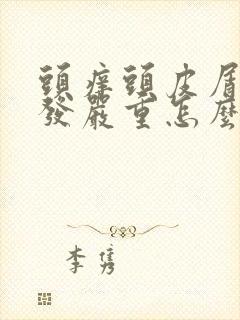 頭痒頭皮屑
發嚴重怎麼
李隽